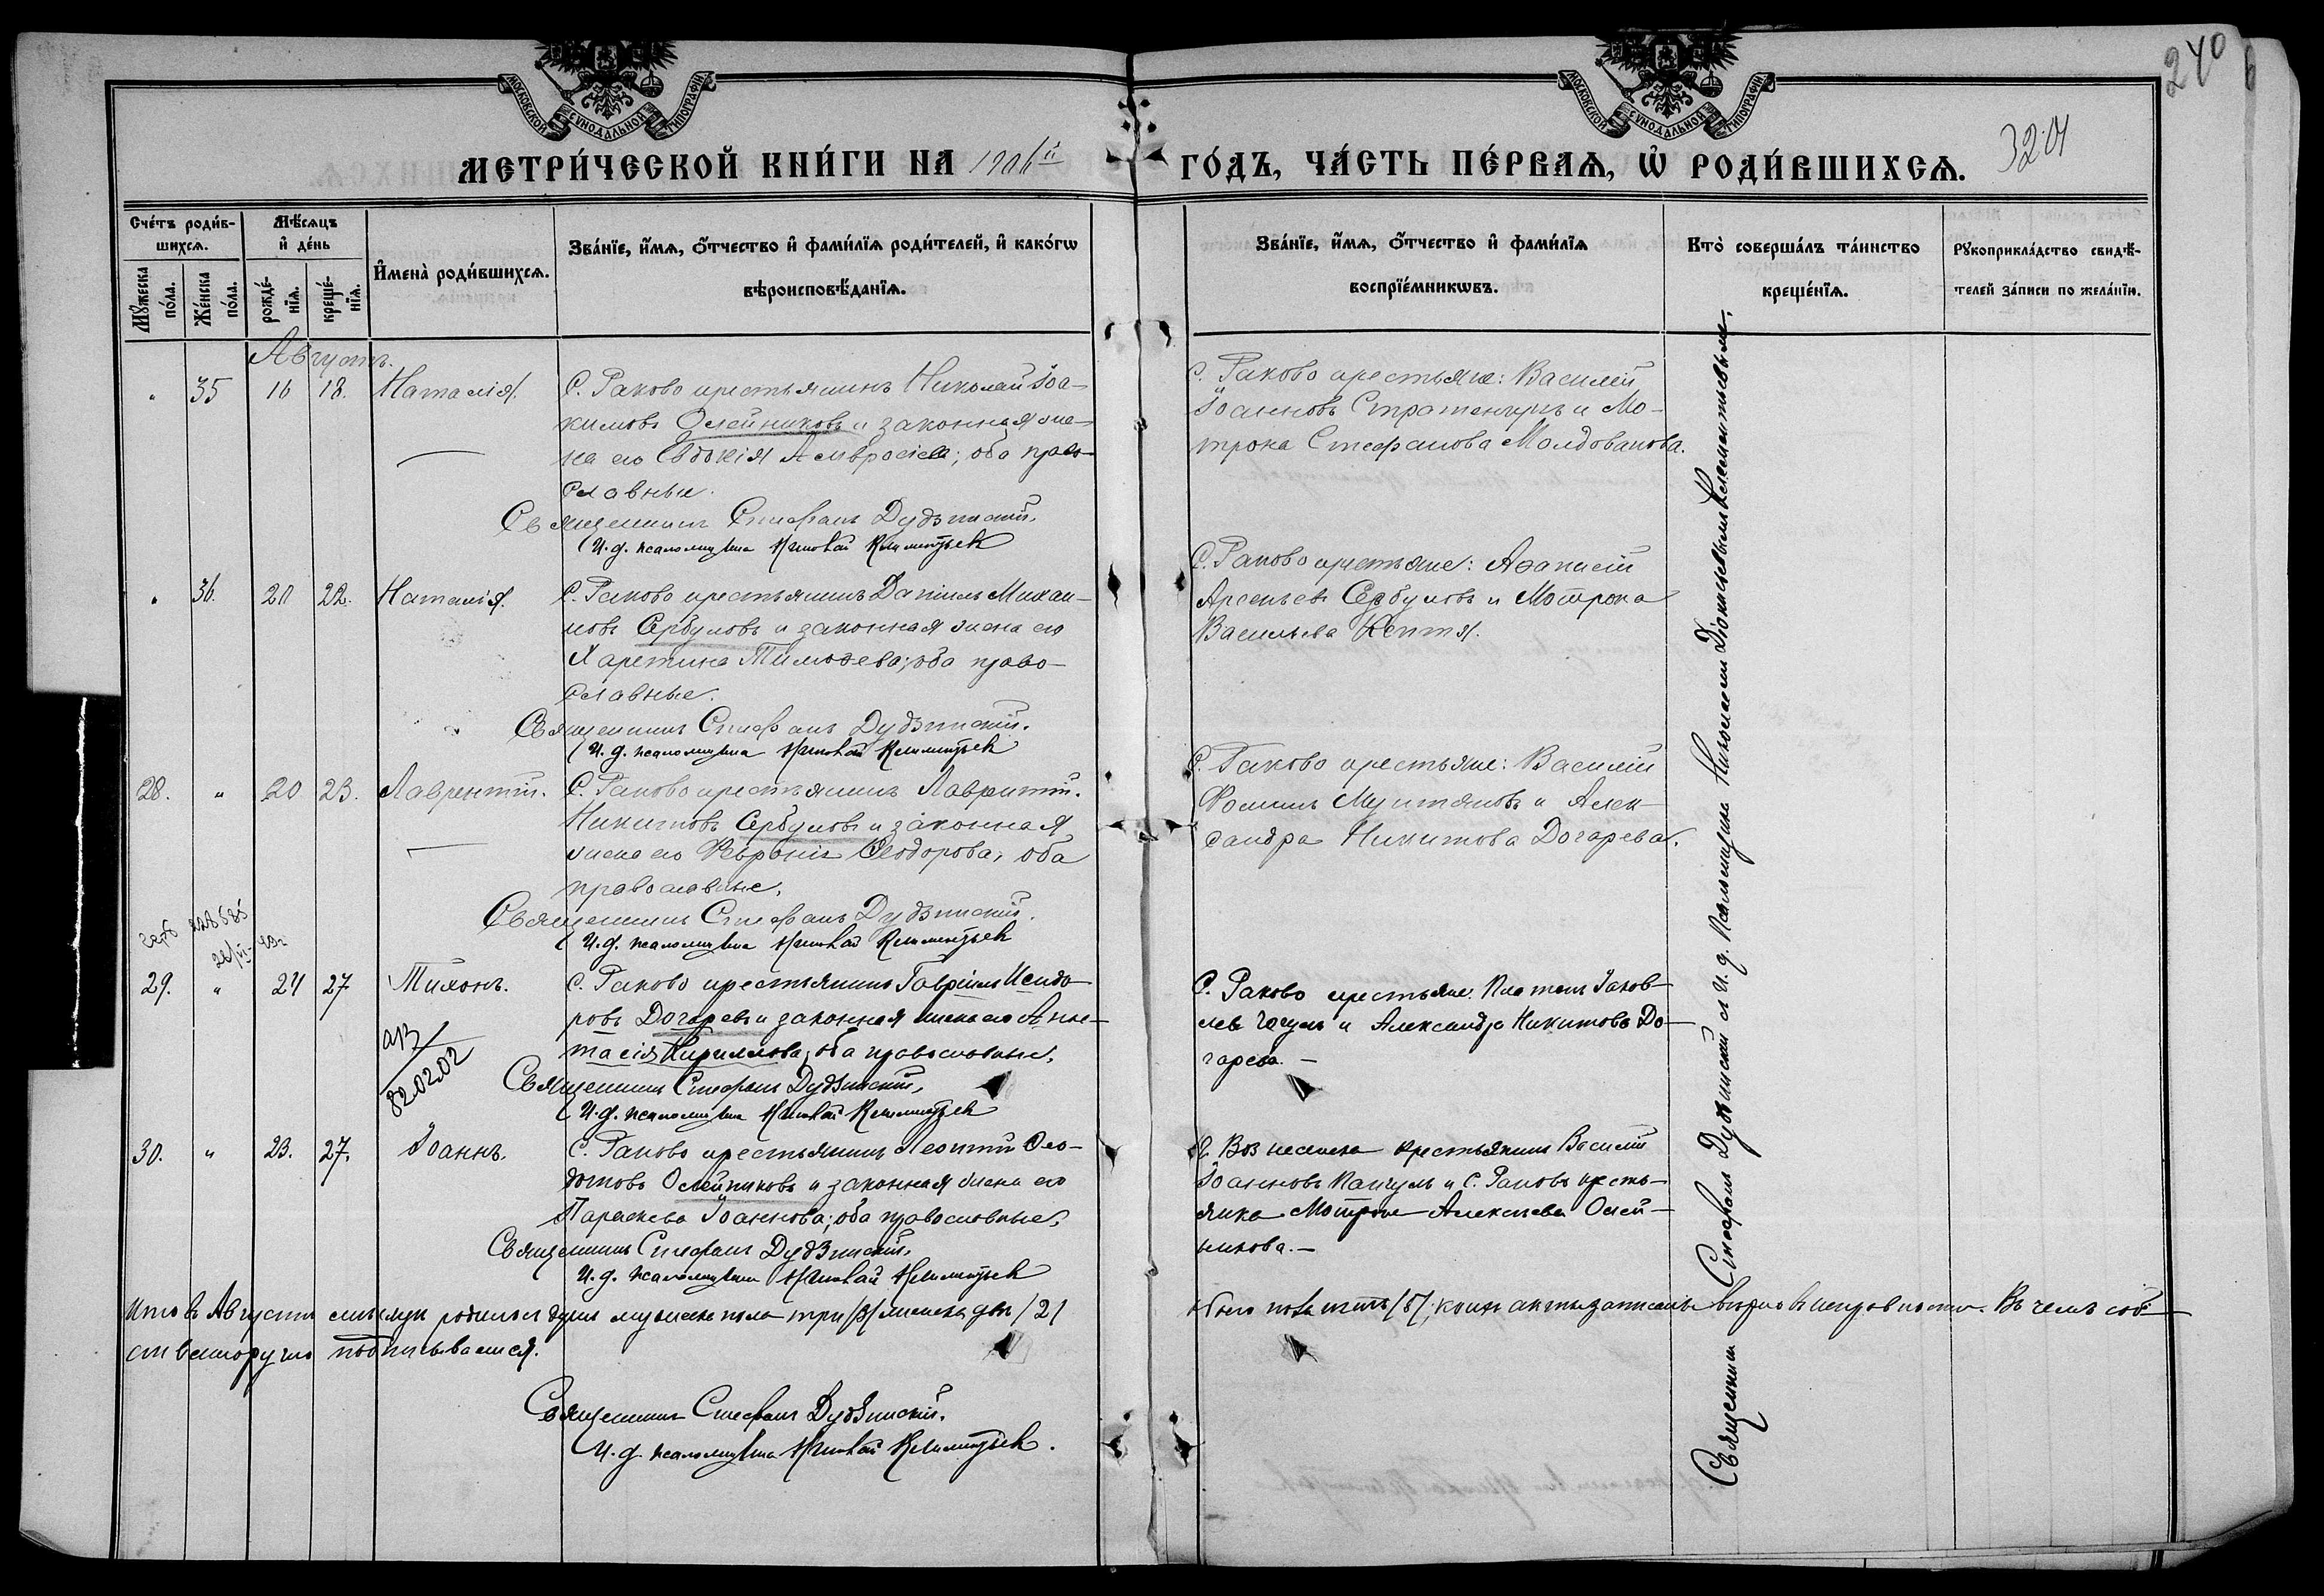 240
320
МОСКОВСКОЙ СѴНОДАЛЬНОЙ ТИПОГРАФІИ
МОСКОВСКОЙ СѴНОДАЛЬНОЙ ТИПОГРАФІИ
МЕТРИ́ЧЕСКОЙ КНИ́ГИ НА 1906й ГО́ДЪ, ЧА́СТЬ ПЕ́РВАѦ, Ѽ РОДИ́ВШИХСѦ.
Сче́тъ роди́в-
шихсѧ.
Мѣ́сѧцъ
и҆ де́нь
Мꙋ́жеска
по́ла.
Же́нска
по́ла.
рожде́-
нїѧ.
креще́-
нїѧ.
И҆мена̀ роди́вшихсѧ.
Зва́нїе, и҆́мѧ, ѻ҆́тчество и҆ фами́лїѧ роди́телей, и҆ како́гѡ
вѣроисповѣ́данїѧ.
Зва́нїе, и҆́мѧ, ѻ҆́тчество и҆ фами́лїѧ
воспрїе́мникѡвъ.
Кто̀ соверша́лъ та́инство
креще́нїѧ.
Рꙋкоприкла́дство свидѣ́-
телей за́писи по жела́нїю.
Августъ.
" 35 16 18. Наталія.
С. Раково крестьянинъ Николай Іоа-
кимовъ Олейниковъ и законная же-
на его Евдокія Амвросіева; оба право-
славные.
Священникъ Стефанъ Дудзинскій.
И. д. псаломщика Николай Климентьев
С. Раково крестьяне: Василій
Іоанновъ Стратенчукъ и Мо-
трона Стефанова Молдованова.
" 36. 20 22. Наталія.
С. Раково крестьянинъ Даніилъ Михаи-
ловъ Сербуловъ и законная жена его
Харетина Тимофеева; оба право-
славные.
Священникъ Стефанъ Дудзинскій.
И. д. псаломщика Николай Климентьев
С. Раково крестьяне: Аѳанасій
Арсеньевъ Сербуловъ и Мотрона
Васильева Кептя.
28. " 20 23. Лаврентій.
С. Раково крестьянинъ Лаврентій
Никитовъ Сербуловъ и законная
жена его Февронія Ѳеодорова, оба
православные.
Священникъ Стефанъ Дудзинскій.
И. д. псаломщика Николай Климентьев
С. Раково крестьяне: Василій
Фоминъ Мунтяновъ и Алек-
сандра Никитова Догарева.
29. " 24 27 Тихонъ.
82.02.02
С. Раково крестьянинъ Гавріилъ Исидо-
ровъ Догаревъ и законная жена его Ана-
стасія Кириллова, оба православные.
Священникъ Стефанъ Дудзинскій.
И. д. псаломщика Николай Климентьев
С. Раково крестьяне: Платонъ Іаков-
левъ и Александра Никитова До-
гарева. —
30. " 23. 27. Іоаннъ.
С. Раково крестьянинъ Леонтій Ѳео-
дотовъ Олейниковъ и законная жена его
Параскева Іоаннова; оба православные.
Священникъ Стефанъ Дудзинскій.
И. д. псаломщика Николай Климентьев
С. Вознесенска крестьянинъ Василій
Іоанновъ и С. Раково кресть-
янка Мотрона Алексеева Олей-
никова. —
Священникъ Стефанъ Дудзинскій съ и. д. псаломщика Николаемъ Діонисіевымъ Климентьевымъ.
Итого въ Августе месяце родилось душъ мужеска пола три /3/ женска два /2/ обоего пола пять /5/; коихъ акты записаны верно въ исправности. Въ чемъ соб-
ственноручно подписываемся.
Священникъ Стефанъ Дудзинскій.
И. д. псаломщика Николай Климентьев.